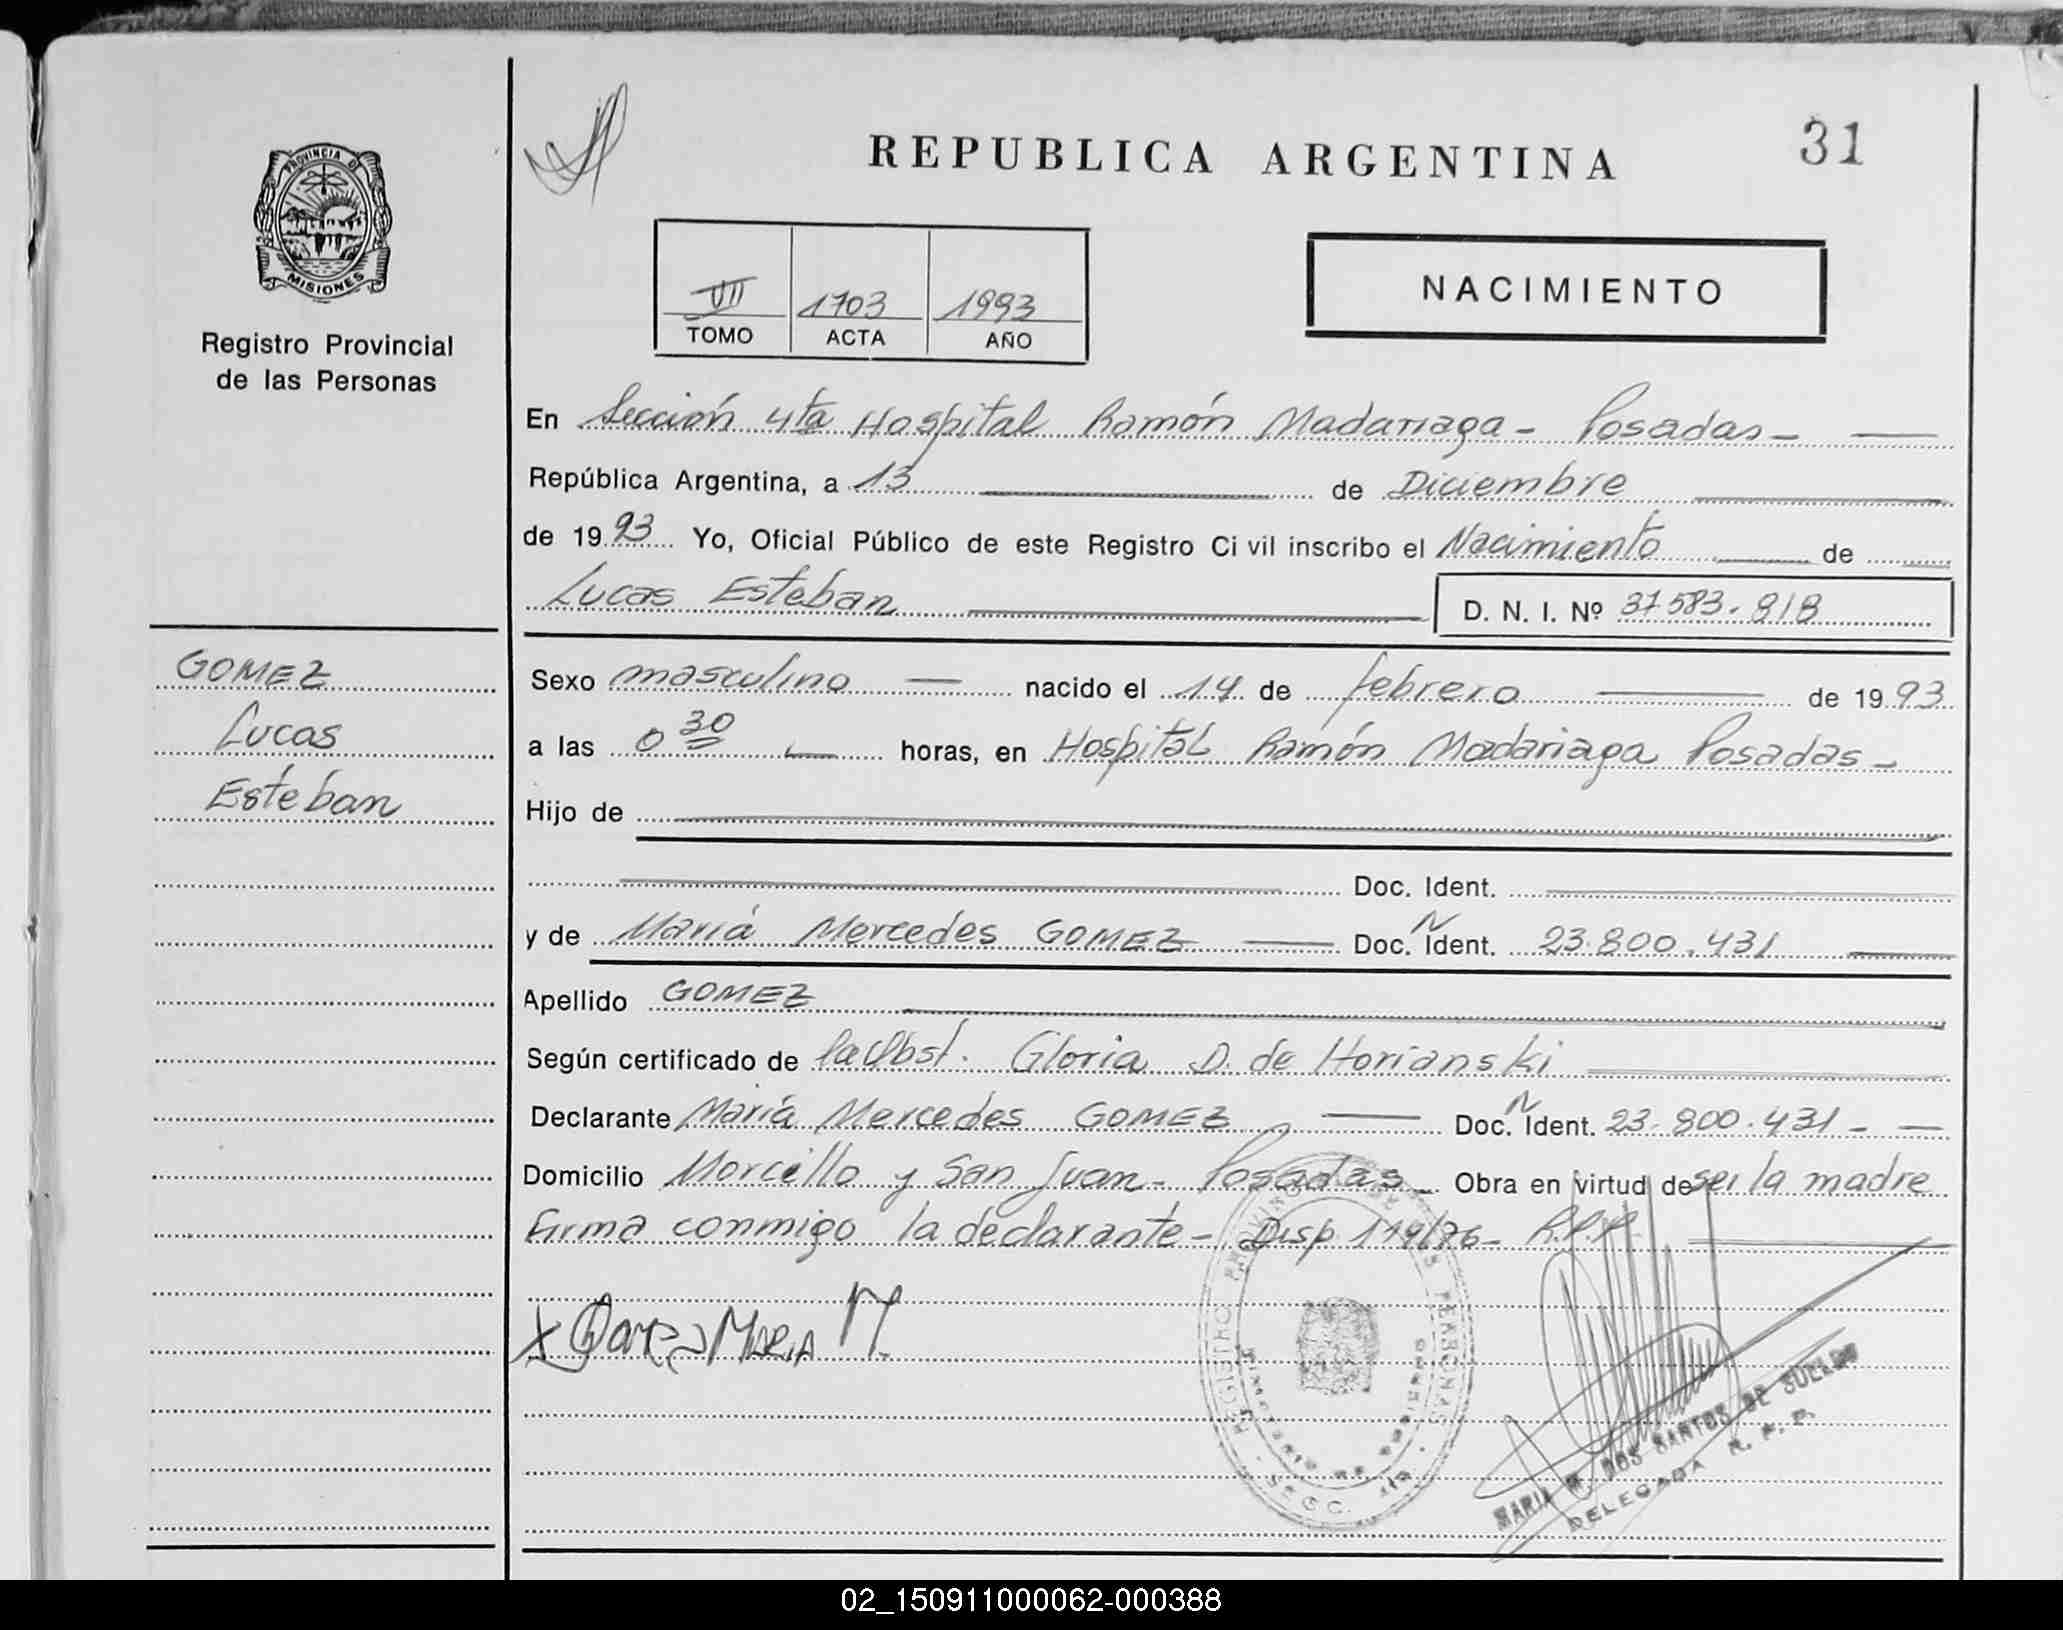 REPUBLICA ARGENTINA
31
PROVINCIA DE
MISIONES
Registro Provincial
de las Personas
VII 1703 1993
TOMO ACTA AÑO
NACIMIENTO
En Sección 4ta Hospital Ramón Madariaga - Posadas -
República Argentina, a 13 de Diciembre
de 1993 Yo, Oficial Público de este Registro Ci vil inscribo el Nacimiento de
Lucas Esteban D. N. I. Nº 37583.818
GOMEZ
Lucas
Esteban
Sexo masculino nacido el 14 de febrero de 1993
a las 0 30 horas, en Hospital Ramón Madariaga Posadas -
Hijo de
Doc. Ident.
y de María Mercedes GOMEZ Doc. N Ident. 23.800.431
Apellido GOMEZ
Según certificado de la Obst. Gloria D. de Horianski
Declarante María Mercedes GOMEZ Doc. N Ident. 23.800.431 -
Domicilio Morcillo y San Juan - Posadas - Obra en virtud de ser la madre
Firma conmigo la declarante - Disp 119/76 - R.P.P.
X Gomez Maria M.
REGISTRO PROVINCIAL DE LAS PERSONAS
MINISTERIO DE GOBIERNO
MARIA M. DOS SANTOS DE
DELEGADA R. P. P.
02_150911000062-000388